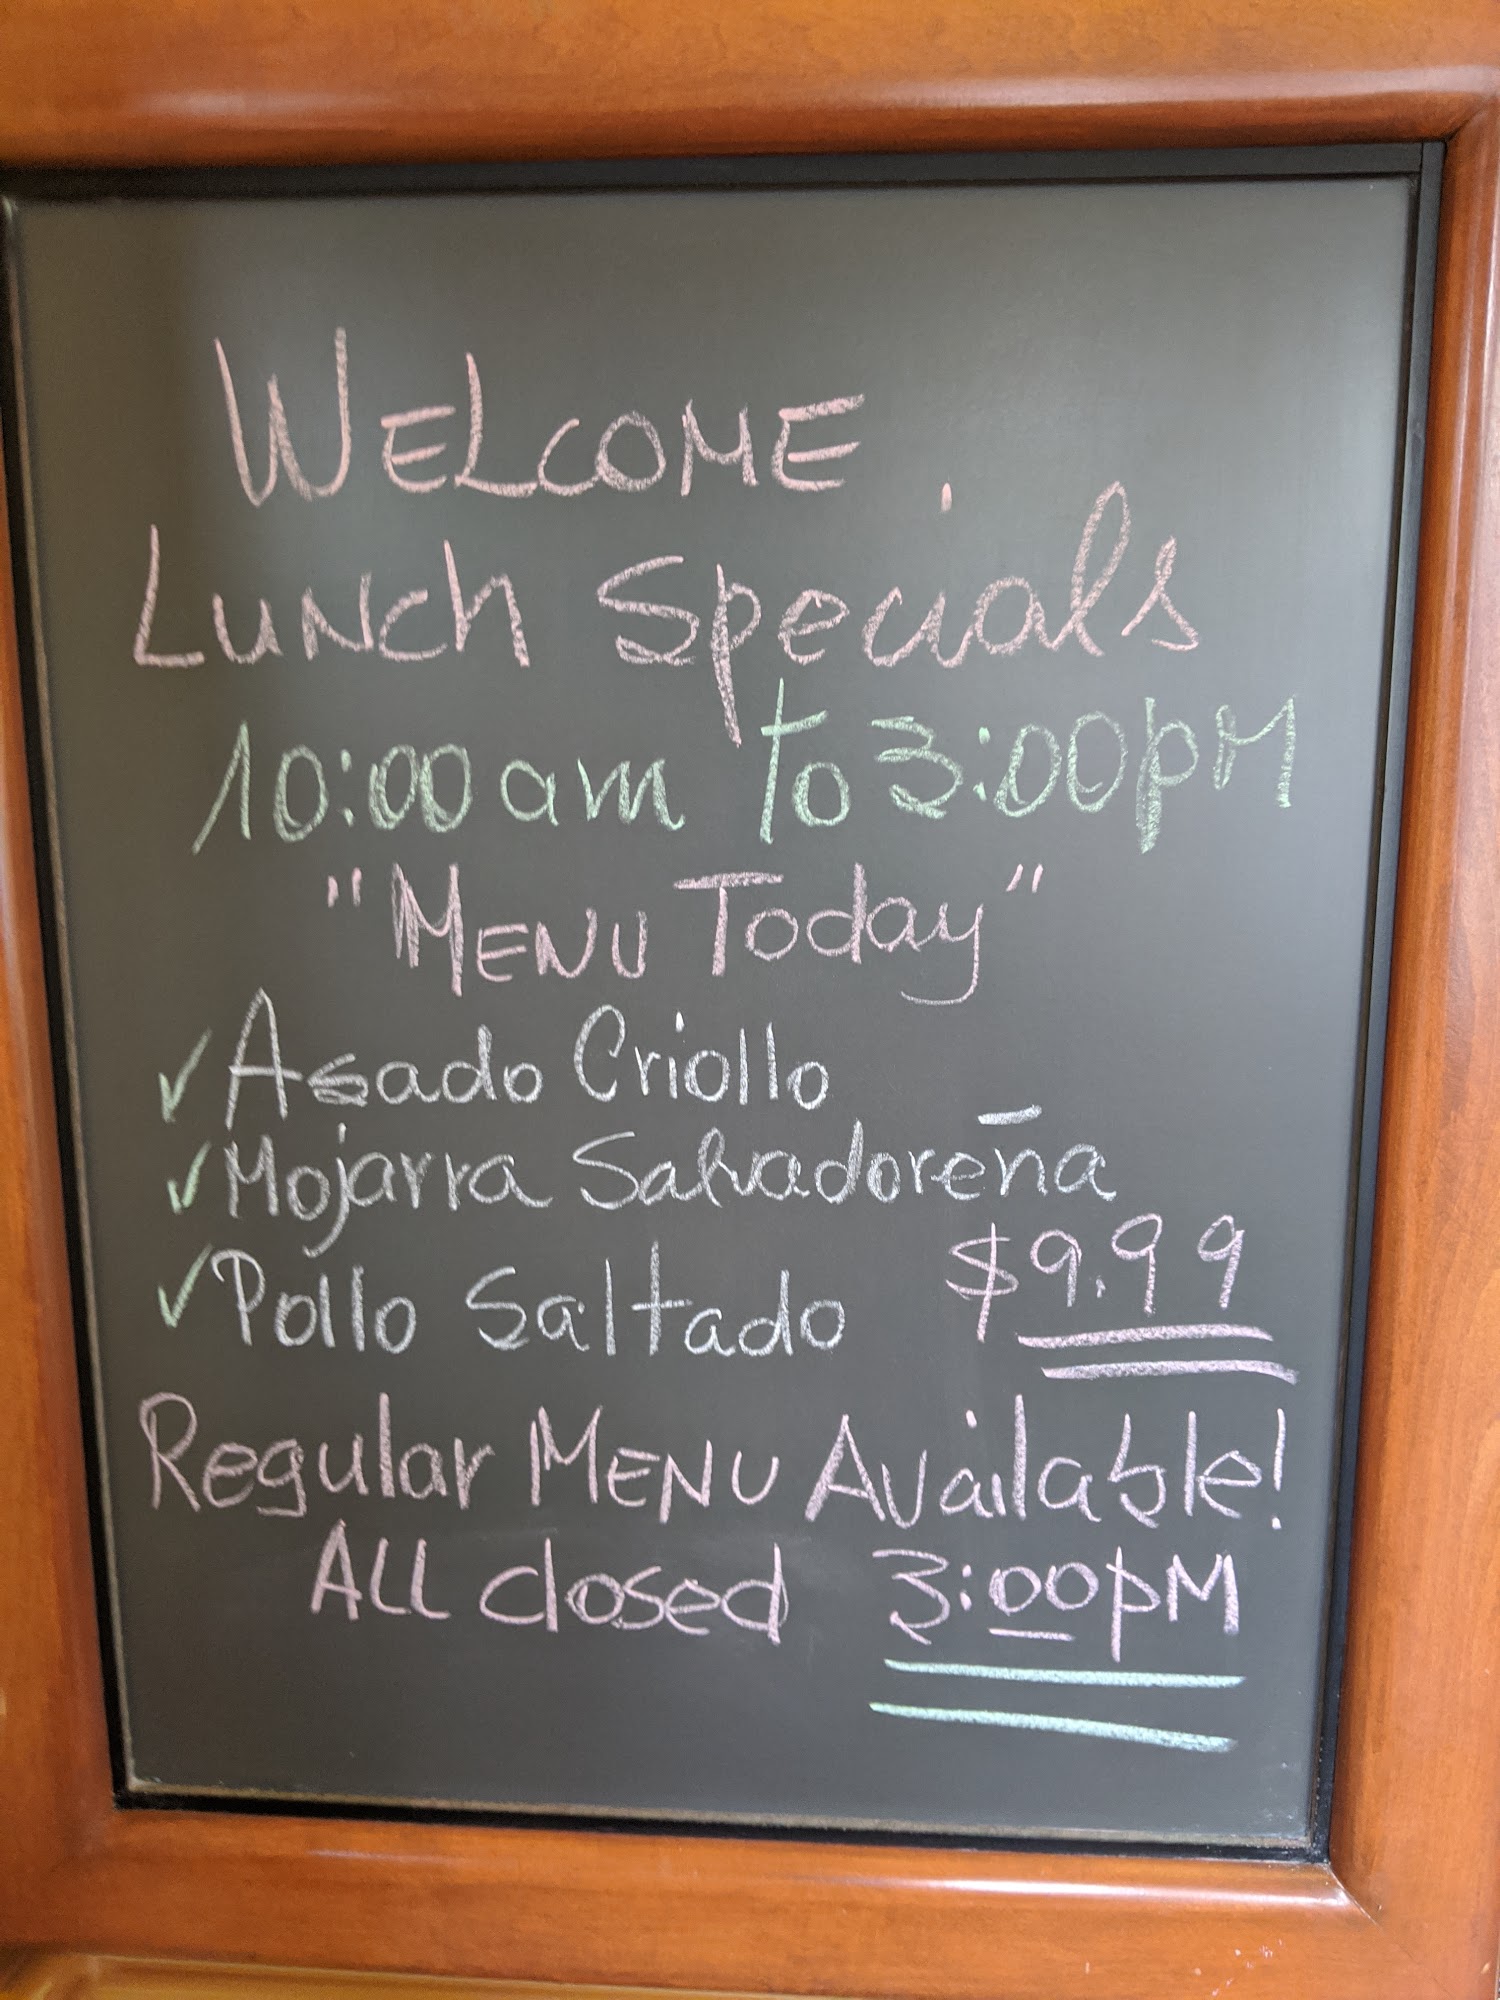 WELCOME
Lunch Specials
10:00am to 3:00pM
"MENU Today"
✓ Asado Criollo
✓ Mojarra Salvadoreña
✓ Pollo Saltado $9.99
Regular MENU Available!
ALL closed 3:00pM